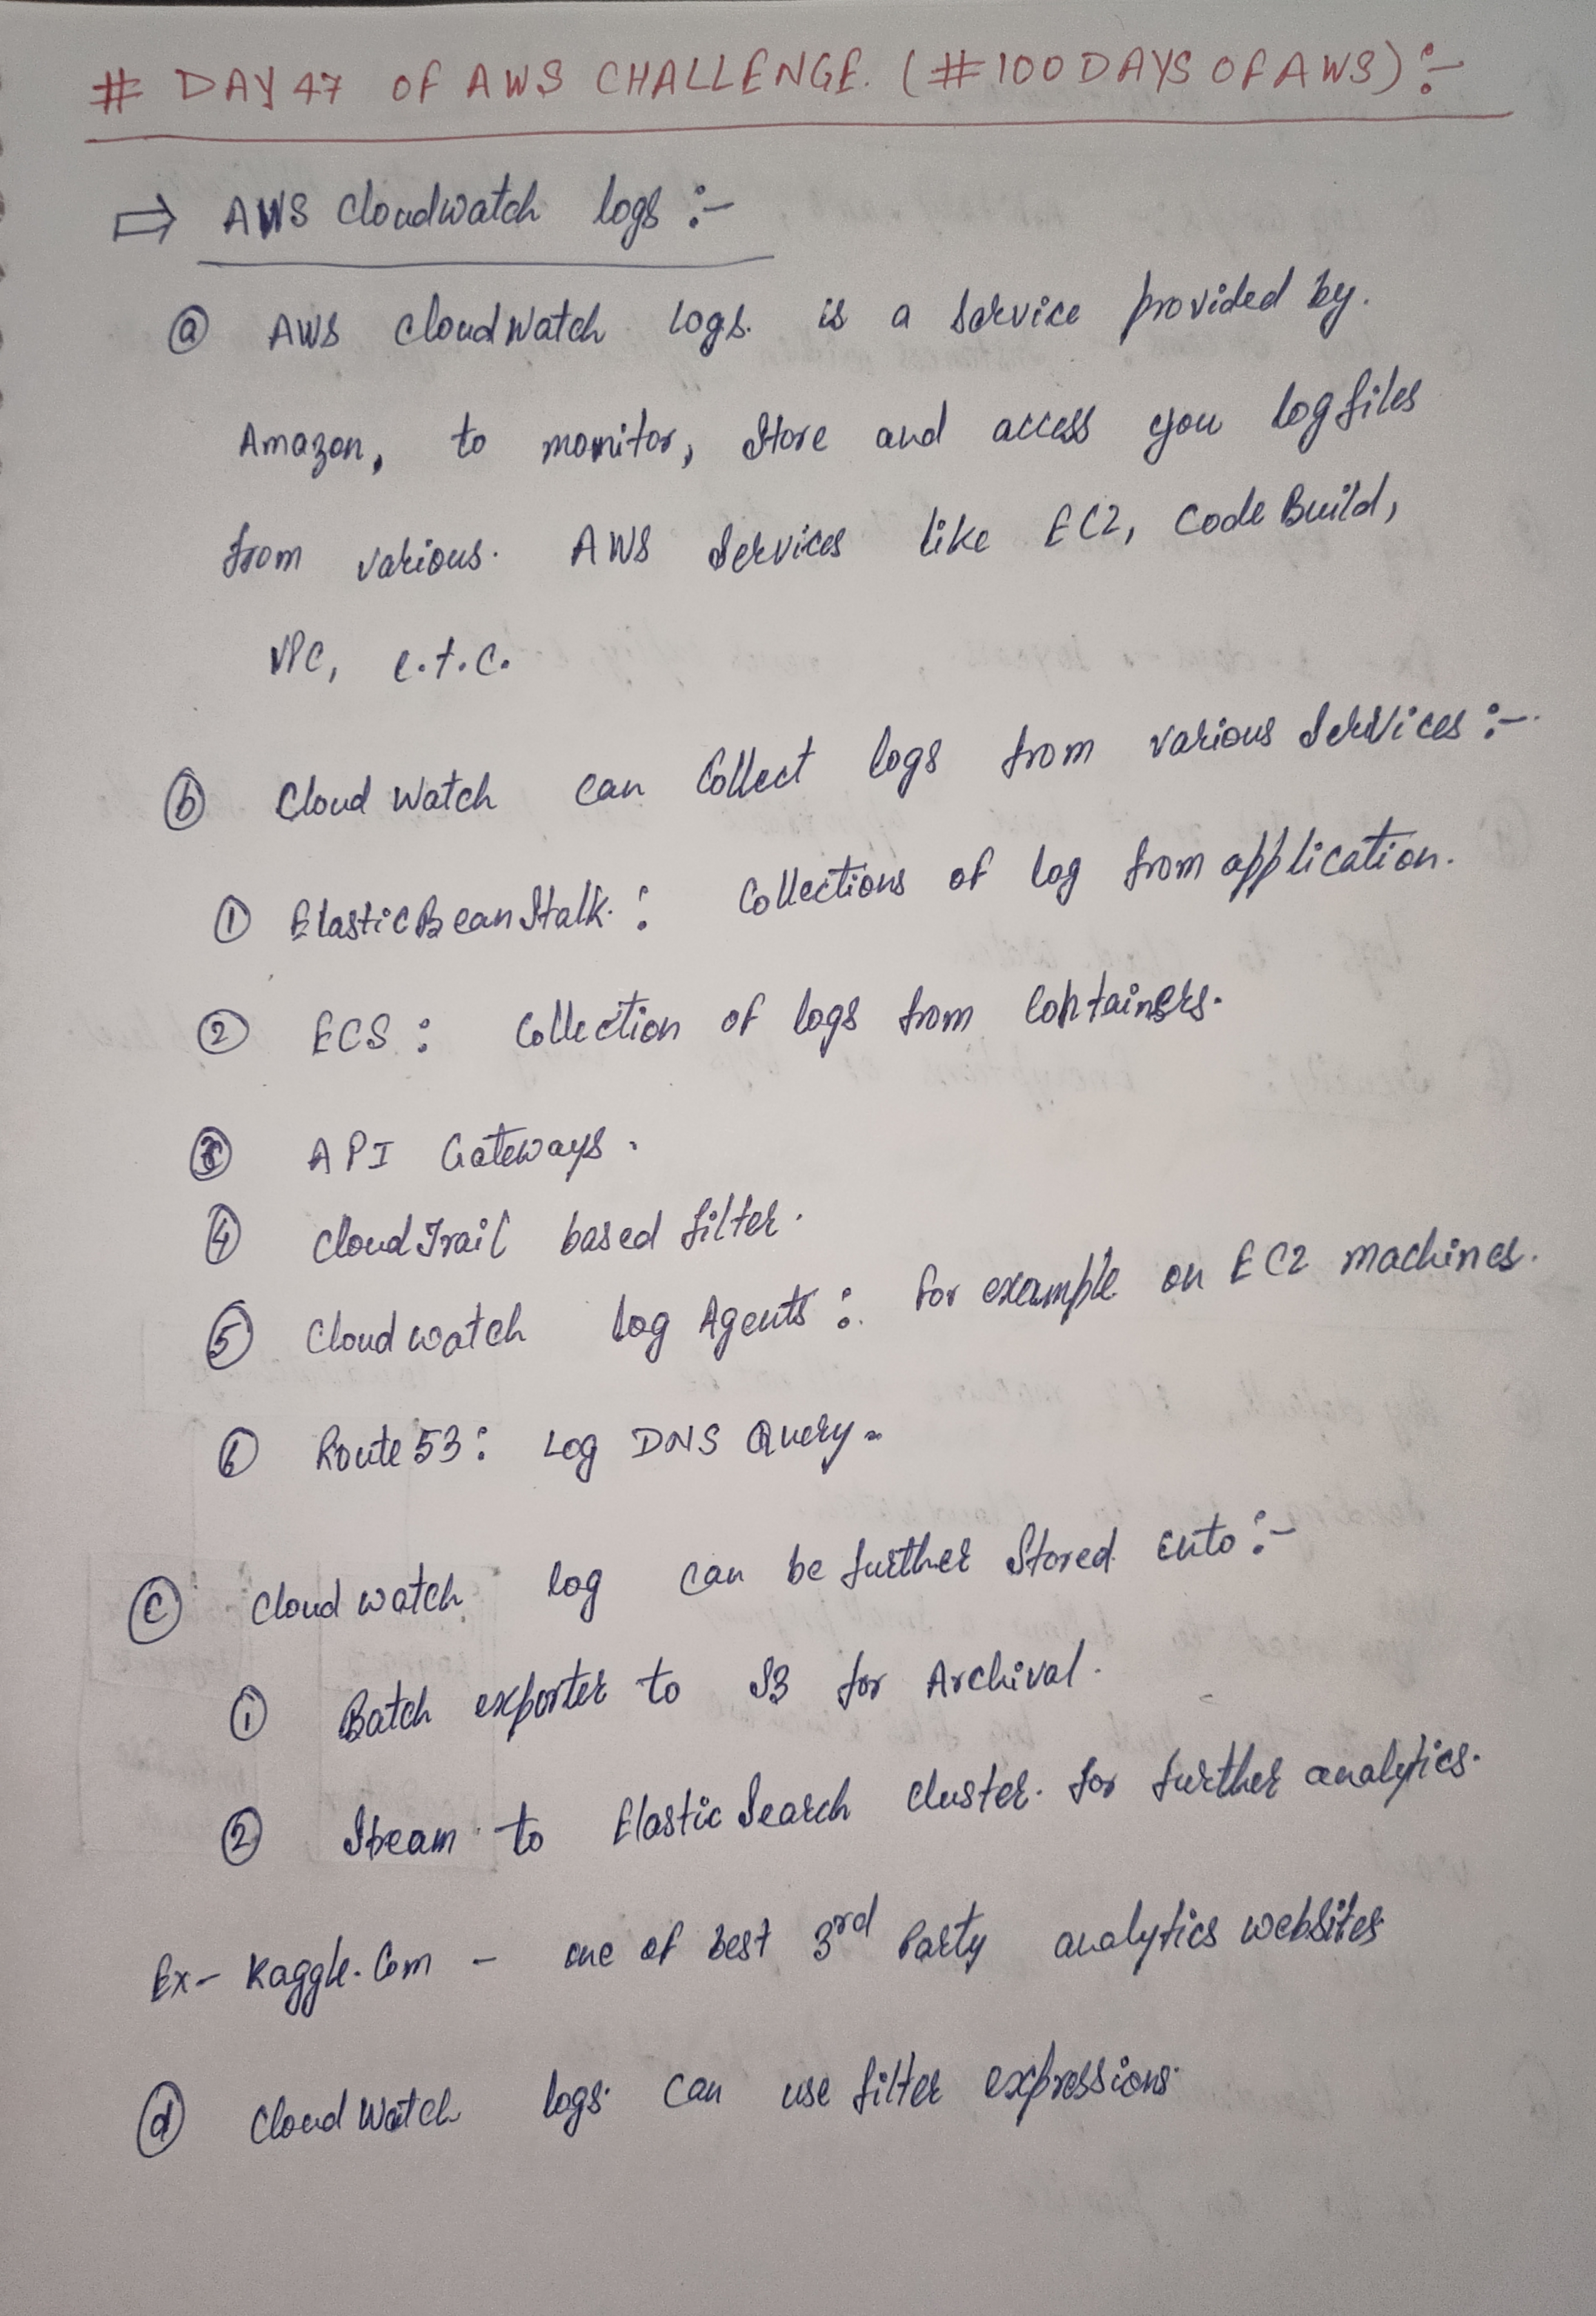 # DAY 47 OF AWS CHALLENGE. (#100DAYSOFAWS):-
⇒ AWS Cloudwatch logs :-
ⓐ AWS CloudWatch Logs. is a service provided by.
Amazon, to monitor, Store and access you log files
from various. AWS Services like EC2, Code Build,
VPC, e.t.c.
ⓑ Cloud Watch can Collect logs from various Services :-
① ElasticBeanStalk. : Collections of log from application.
② ECS : Collection of logs from Containers.
③ API Gateways.
④ CloudTrail based filter.
⑤ Cloud watch log Agents : for example on EC2 machines.
⑥ Route 53 : Log DNS Query.
ⓒ Cloud watch log can be further Stored into :-
① Batch exporter to S3 for Archival.
② Stream to Elastic Search cluster. for further analytics.
Ex- Kaggle.Com - one of best 3rd Party analytics websites
ⓓ Cloud Watch logs. can use filter expressions.